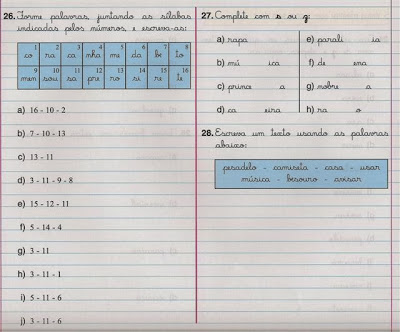 26. Forme palavras, juntando as sílabas
indicadas pelos números, e escreva-as:
1 2 3 4 5 6 7 8
co ra ca nha me da be to
9 10 11 12 13 14 15 16
men sou sa pre ro si re te
a) 16 - 10 - 2
b) 7 - 10 - 13
c) 13 - 11
d) 3 - 11 - 9 - 8
e) 15 - 12 - 11
f) 5 - 14 - 4
g) 3 - 11
h) 3 - 11 - 1
i) 5 - 11 - 6
j) 3 - 11 - 6
27. Complete com s ou z:
a) rapa
b) mú ica
c) prince a
d) ca eira
e) parali ia
f) de ena
g) nobre a
h) ra o
28. Escreva um texto usando as palavras
abaixo:
pesadelo - camiseta - casa - usar
música - besouro - avisar